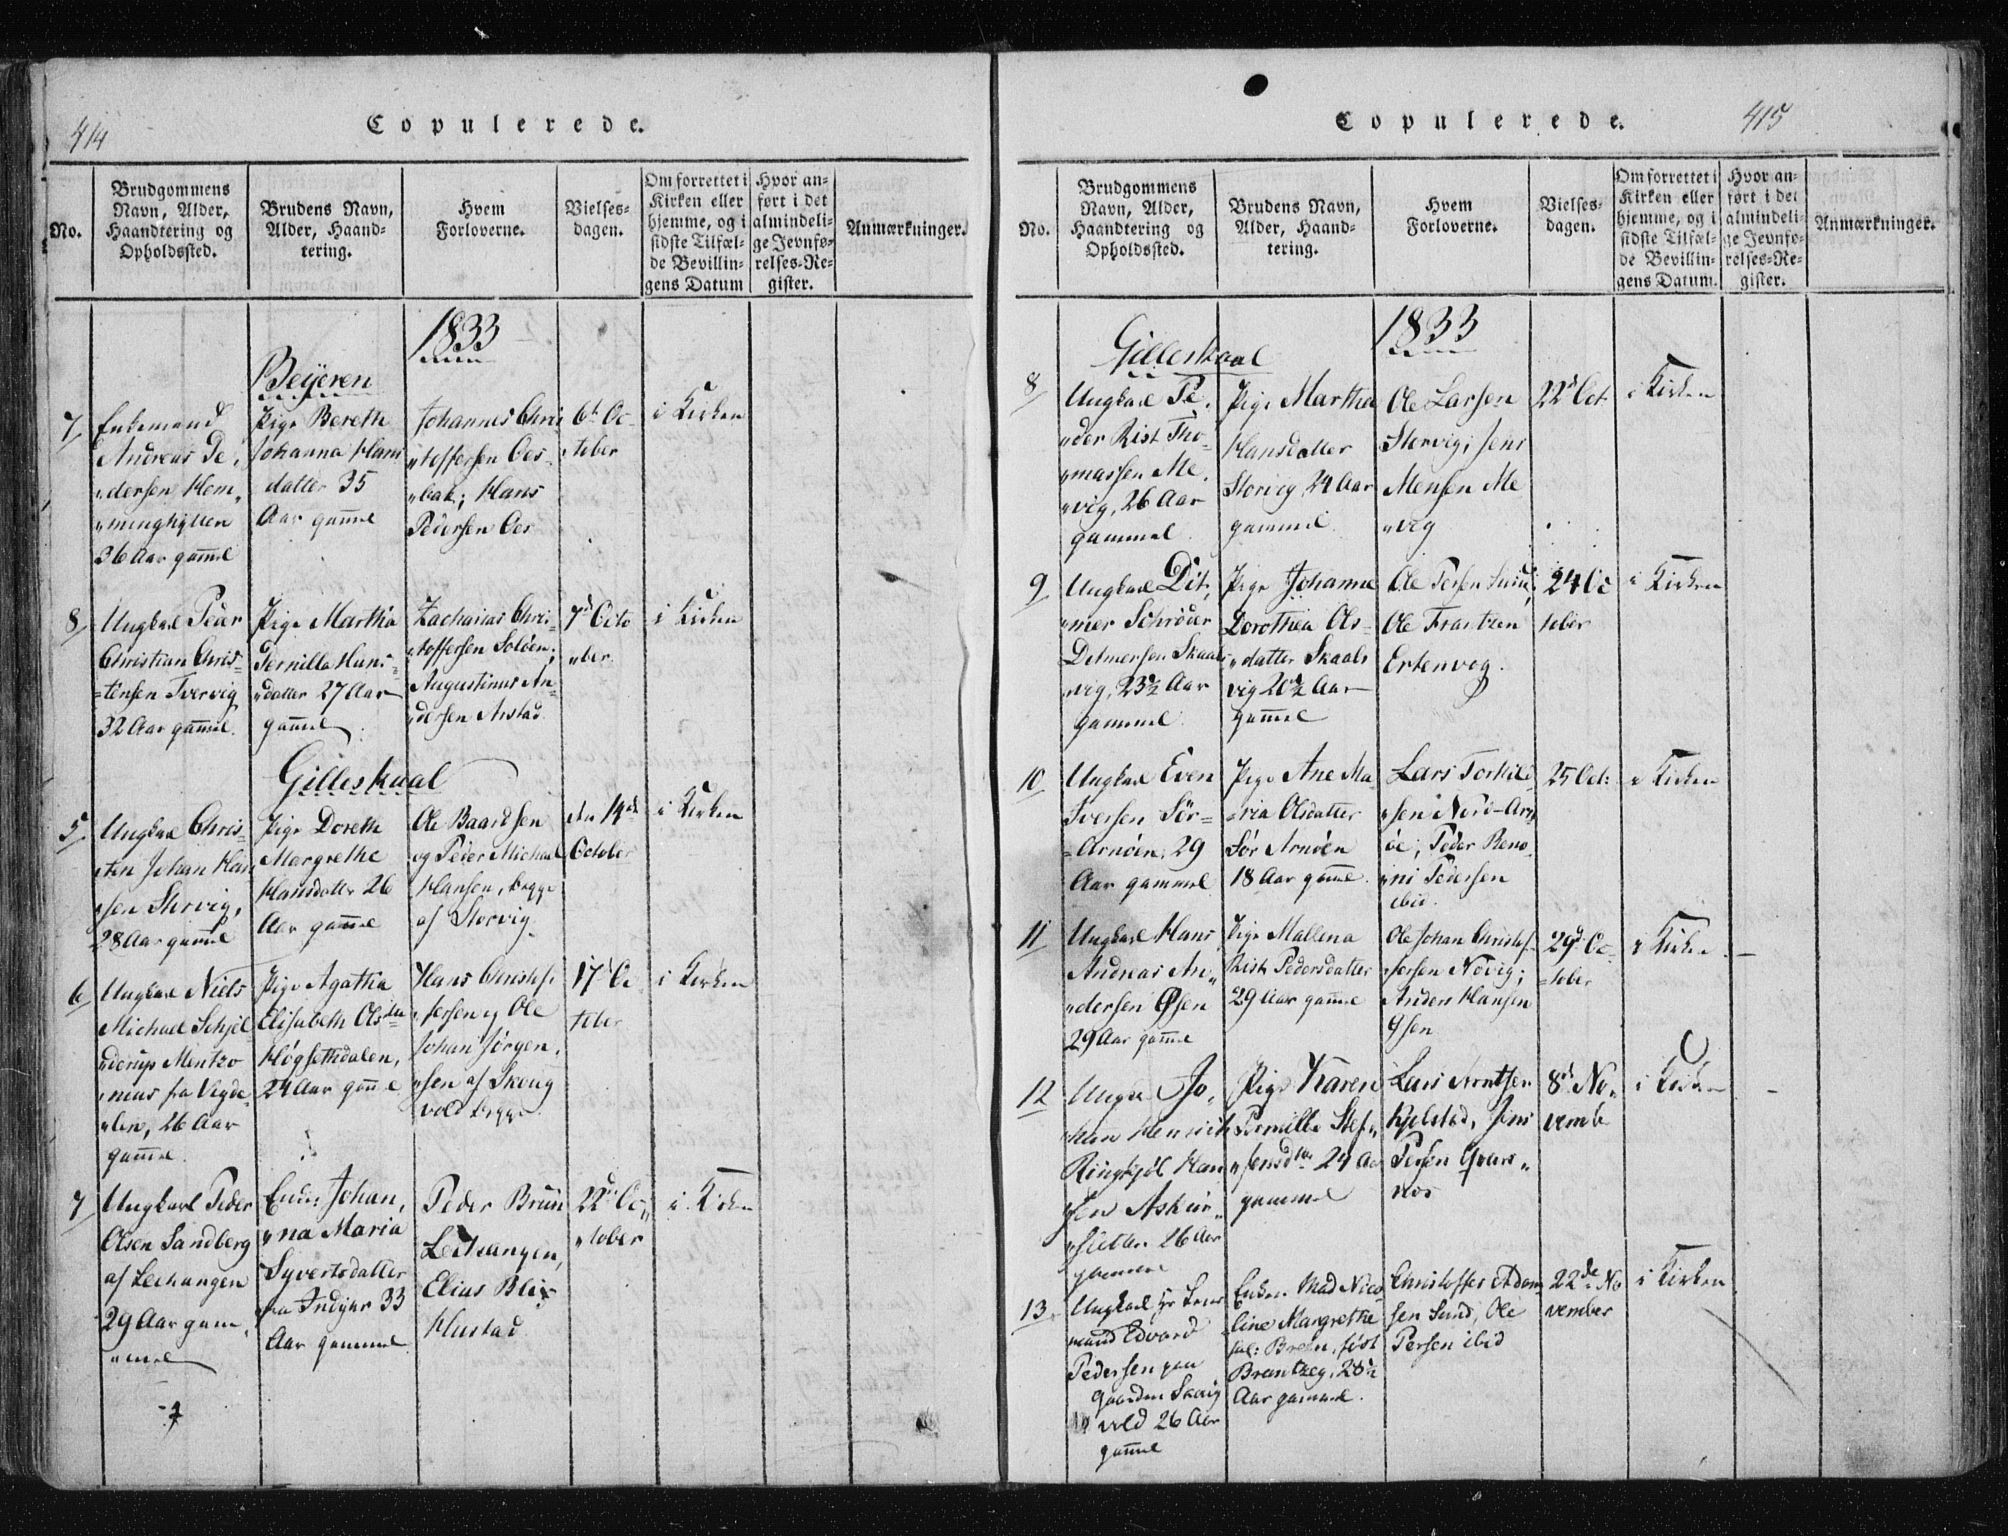 414
Copulerede.
No.
Brudgommens
Navn, Alder,
Haandtering og
Opholdssted.
Brudens Navn,
Alder, Haand-
tering.
Hvem
Forloverne.
Vielses-
dagen.
Om forrettet i
Kirken eller
hjemme, og i
sidste Tilfæl-
de Bevillin-
gens Datum
Hvor an-
ført i det
almindeli-
ge Jevnfø-
relses-Re-
gister.
Anmærkninger.
1833
Beijeren
7
Enkemand
Andreas Pe,
„dersen Hem,
„minghÿtten
36 Aar gam̄el
Pige Bereth
Johanna Hans
datter 35
Aar gam̄el
Johannes Chri
„stoffersen Oes-
„bak; Hans
Pedersen Oes
6te Oc-
„tober
i Kirken
8
Ungkarl Pear
Christian Chris-
-tensen Tvervig
32 Aar gam̄el.
Pige Martha
Pernilla Hans-
„datter 27 Aar
gam̄el
Zacharias Chri-
„stoffersen Soløen;
Augustinus An-
„dersen Arstad
7de Octo
„ber
i Kirken
Gilleskaal
5
Ungkarl Chris-
„ten Johan Han
„sen Storvig,
28 Aar gam̄el
Pige Doreth
Margrethe
Hansdatter 26
Aar gam̄el
Ole Baardsen
og Peder Michael
Hansen, begge
af Storvig
den 14de
October
i Kirken
6
Ungkarl Niels
Michael Schjel
„derup Mentzo
„nius fra Vigda-
„len, 26 Aar
gam̄el
Pige Agatha
Elisabeth Olsdtr
Høgsethdalen,
24 Aar gam̄el
Hans Christof,
„fersen og Ole
Johan Jørgen,
„sen af Skoug
vold begge
17de Oc
tober
i Kirken
7
Ungkarl Peder
Olsen Sandberg
af Lechangen
29 Aar gam,
„mel
Enke: Johan,
„na Maria
Syvertsdatter
fra Indyhr 33
Aar gammel
Peder Bruun
Leetsangen,
Elias Blix
Hustad
22de Oc„
„tober
i Kirken
415
Copulerede.
No.
Brudgommens
Navn, Alder,
Haandtering og
Opholdssted.
Brudens Navn,
Alder, Haand-
tering.
Hvem
Forloverne.
Vielses-
dagen.
Om forrettet i
Kirken eller
hjemme, og i
sidste Tilfæl-
de Bevillin-
gens Datum.
Hvor an-
ført i det
almindeli-
ge Jevnfø-
relses-Re-
gister.
Anmærkninger.
Gilleskaal
1833
8
Ungkarl Pe,
„der Rist Tho-
„massen Me,
„vig, 26 Aar
gammel
Pige Martha
Hansdatter
Storvig 24 Aar
gammel
Ole Larsen
Storvig, Jens
Mensen Me
„vig
22de Oct.
i Kirken
9
Ungkarl Dit,
„mer Schrøder
Detmersen Skaals
„vig, 23½ Aar
gammel
Pige Johanne
Dorothea Ols-
„datter Skaals
vig 20½ Aar
gam̄el
Ole Persen Sund,
Ole Frantzen
Ertenvog.
24 Oc
tober
i Kirken
10
Ungkarl Even
Iversen Sør-
-Arnøen, 29
Aar gammel
Pige Ane Ma
-ria Olsdatter
Sør Arnøen
18 Aar gam̄el.
Lars Torkild
„sen Nord-Arn
øe; Peder Beno
„ni Pedersen
ibid.
25 Oct:
i Kirken
11
Ungkarl Hans
Andreas An„
„dersen Øsen
29 Aar gam̄el
Pige Mallena
Rist Pedersdatter
29 Aar gam̄el
Ole Johan Christof-
fersen Novig;
Anders Hansen
Øsen
29de Oc-
-tober
i Kirken
12
Ungkarl Jo,
„han Henrich
Ringkjøb Han
„sen Askior„
„sletten 26 Aar
gammel
Pige Karen
Pernilla Stef„
„fensdtr 24 Aar
gammel
Lars Arntsen
Kjelstad, Jens
Persen Qvars„
nes
8de No,
vembr
i Kirken
13
Ungkarl Hr Lens
mand Edvard
Pedersen paa
Gaarden Skoug
vold 26 Aar
gam̄el
Enken Mad Nico
line Margrethe
sal: Breen, født
Brentzeg, 28½
Aar gammel.
Christoffer Adam
sen Sund, Ole
Persen ibid
22de No
vember
i Kirken